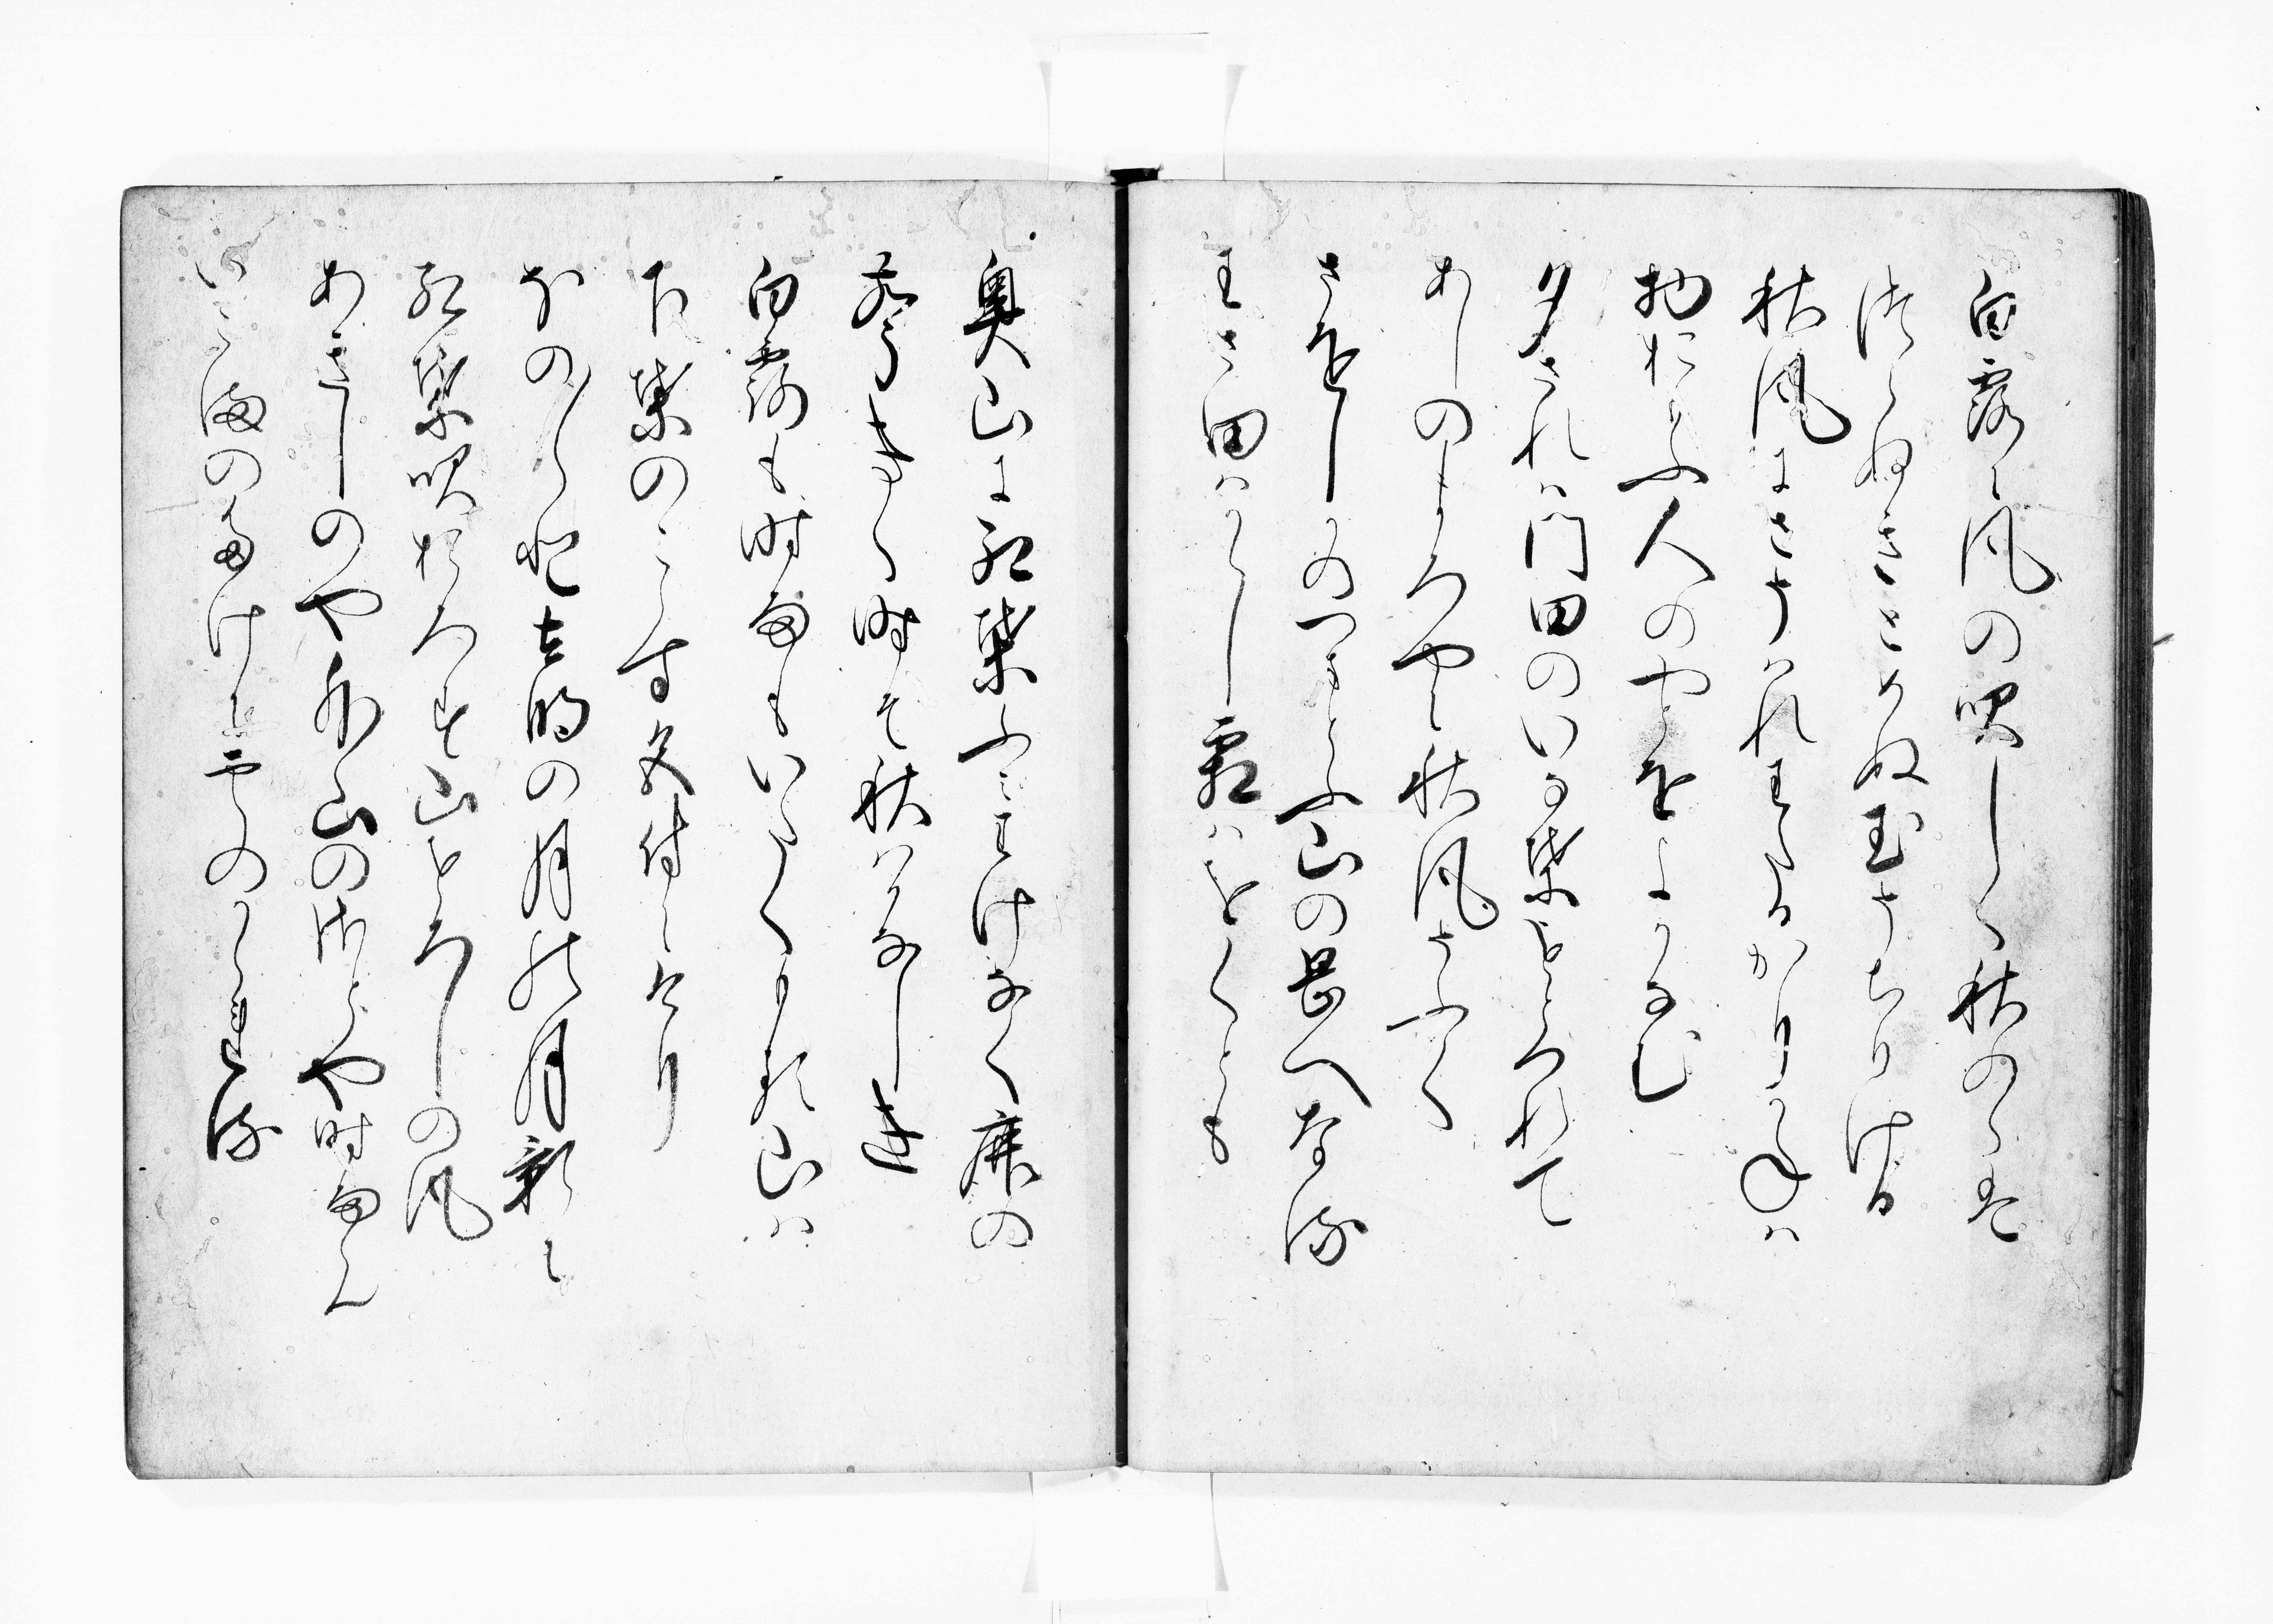 白露に風の吹しく秋のゝは
つらぬきとめぬ玉そちりける
秋風にさそはれわたるかりかねは
物おもふ人のやとをよかなむ
夕されは門田のいな葉をとつれて
あしのまろやに秋風そふく
さをしかのつまとふ山の岡へなる
わさ田はからし霜はをくとも
奥山に紅葉ふみわけなく鹿の
声きく時そ秋はかなしき
白露も時雨もいたくもる山は
下葉のこらす色付にけり
ほの〳〵と有明の月の月影に
紅葉吹おろす山おろしの風
あきしのや外山の里や時雨らん
いこまのたけに雲のかゝれる